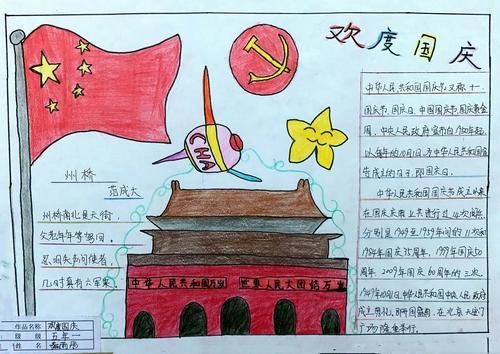 欢度国庆
中华人民共和国国庆节又称十一
国庆节、国庆日、中国国庆节、国庆黄金
周。中央人民政府宣布自1950年起,
以每年的10月1日,为中华人民共和国宣
告成立的日子,即国庆日。
中华人民共和国国庆节成立以来
在国庆庆典上共进行过14次阅兵
分别是1949至1959年间的11次和
1984年国庆35周年,1999年国庆50
周年,2009年国庆60周年的三次。
1949年10月1日,中华人民共和国中央人民政府
成立典礼,即开国盛典,在北京天安门
广场隆重举行。
CHA
州桥
范成大
州桥南北是天街,
父老年年等驾回。
忍泪失声问使者,
几时真有六军来。
中华人民共和国万岁
世界人民大团结万岁
作品名称 欢度国庆
级 五年一
姓名